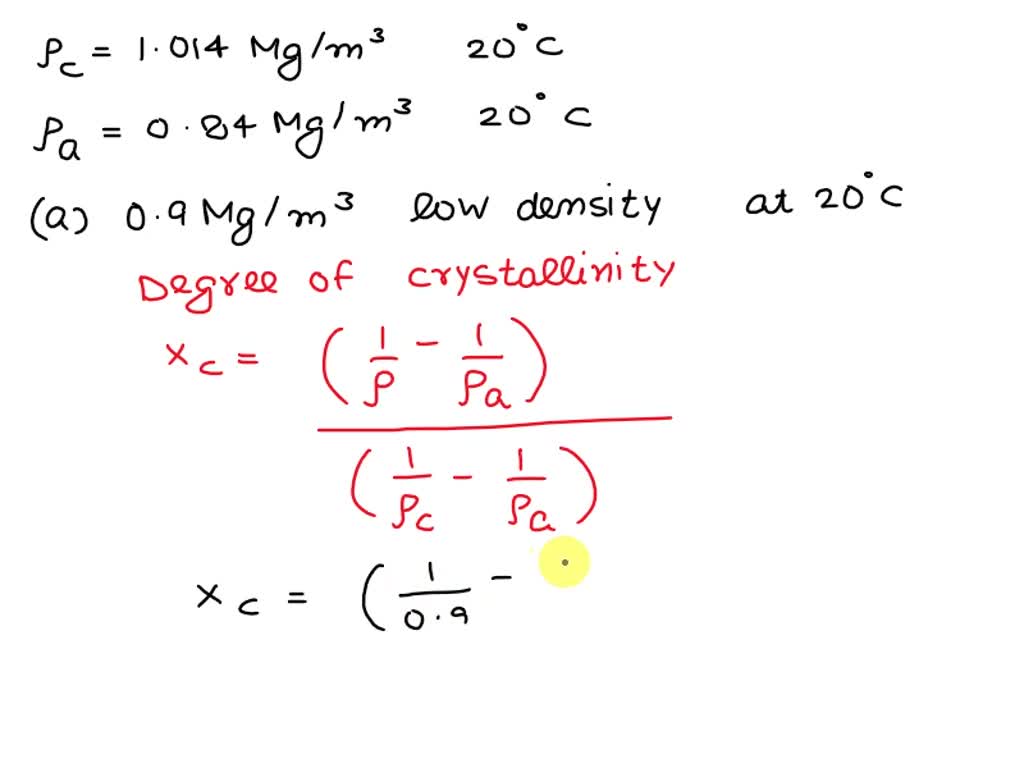 ρc = 1.014 Mg/m³ 20°C
ρa = 0.84 Mg/m³ 20°C
(a) 0.9 Mg/m³ low density at 20°C
Degree of crystallinity
xc = (1/ρ - 1/ρa)
(1/ρc - 1/ρa)
xc = (1/0.9 -